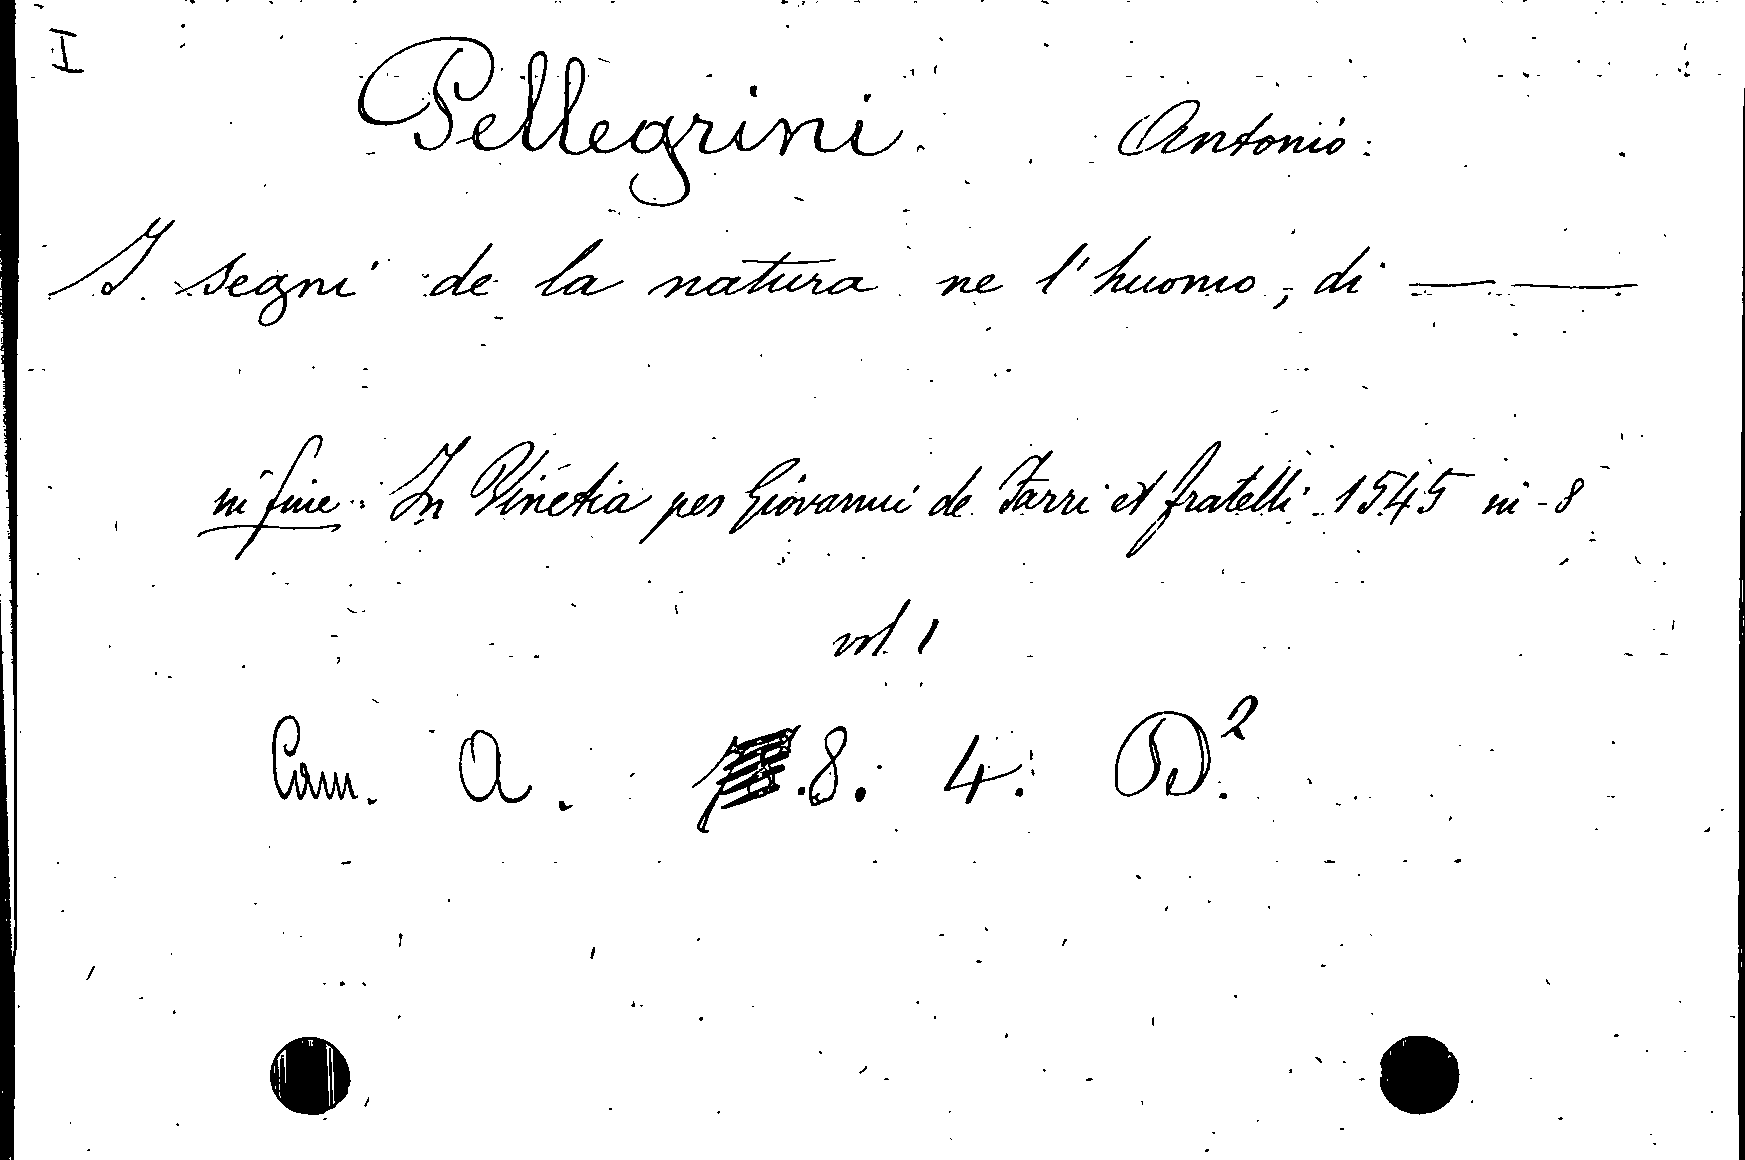 I
Pellegrini Antonio.
I segni de la natura ne l'huomo, di — —
in fine: In Vinetia per Giovanni de Farri et fratelli 1545 in-8
vol. 1
Cam. A. 8. 4. D².